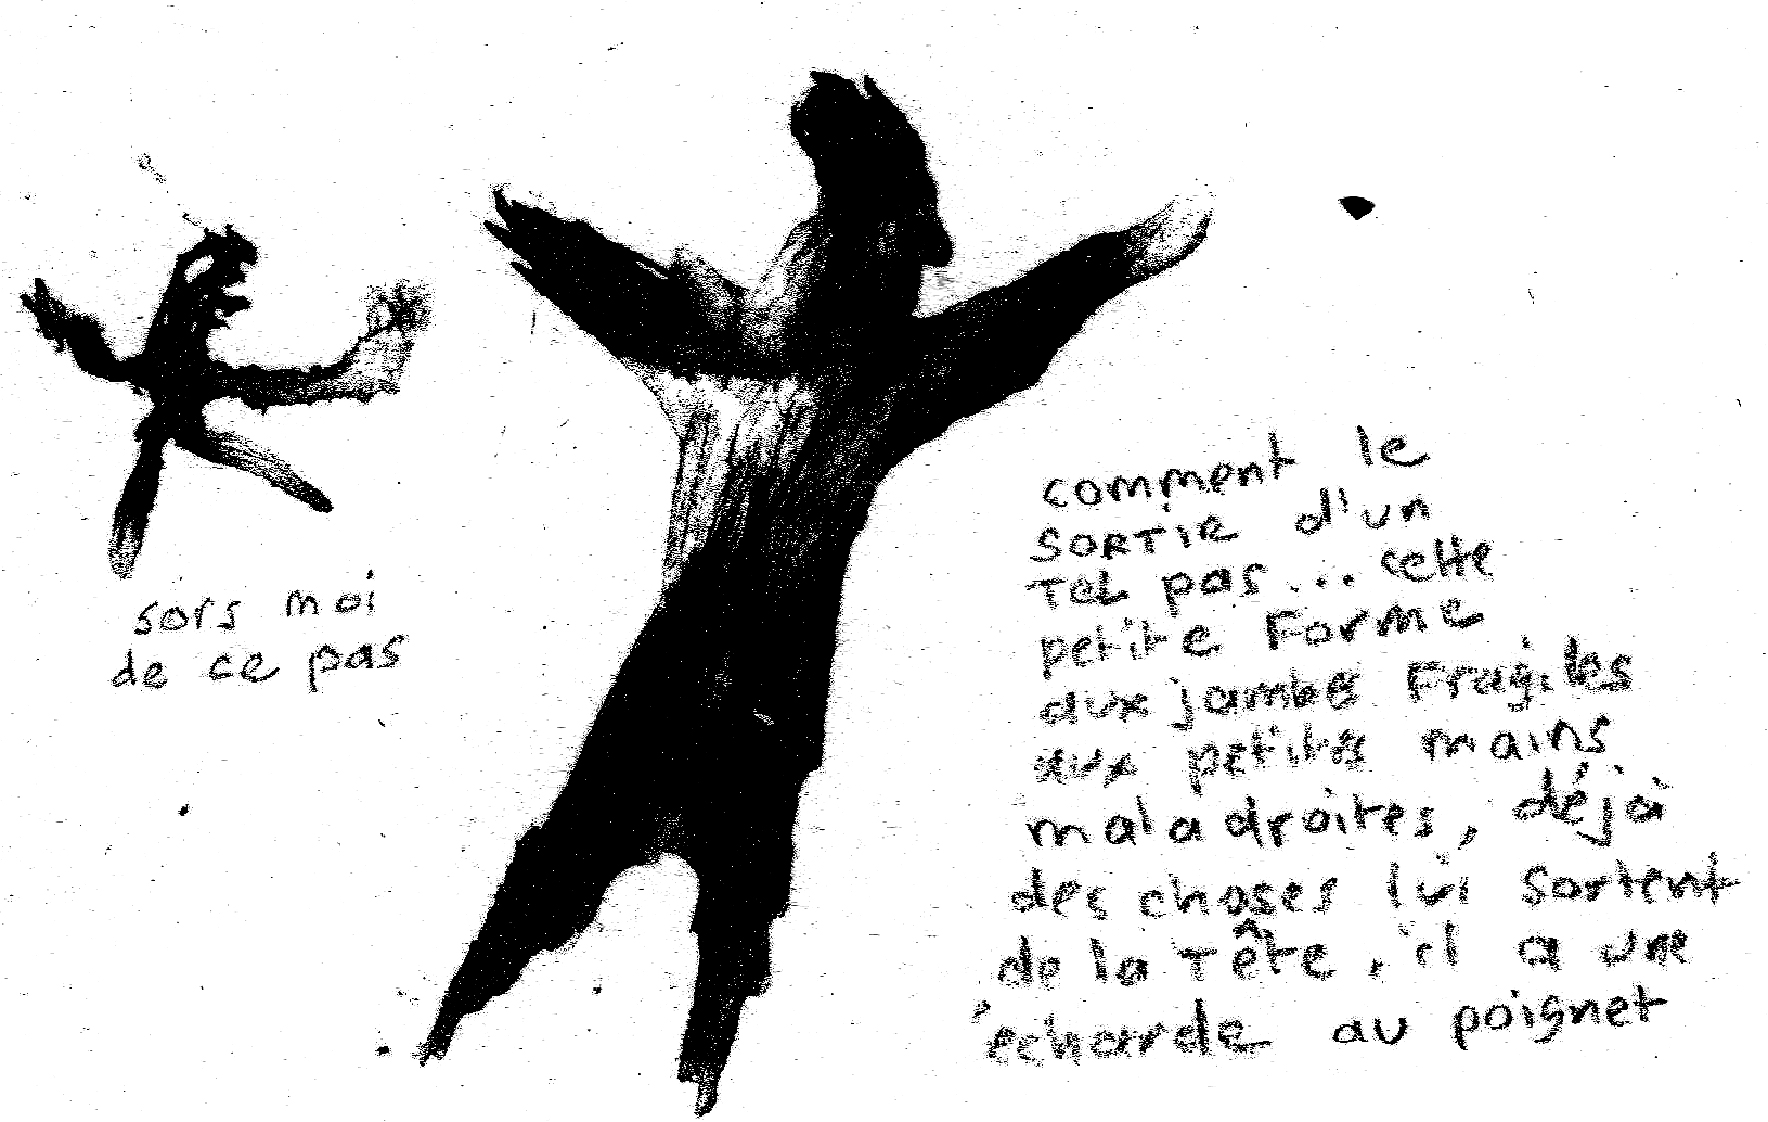 sors moi
de ce pas
comment le
SORTIR d'un
TEL pas... cette
petite Forme
aux jambes Fragiles
aux petites mains
maladroites, déjà
des choses lui sortent
de la Tête, il a une
écharde au poignet